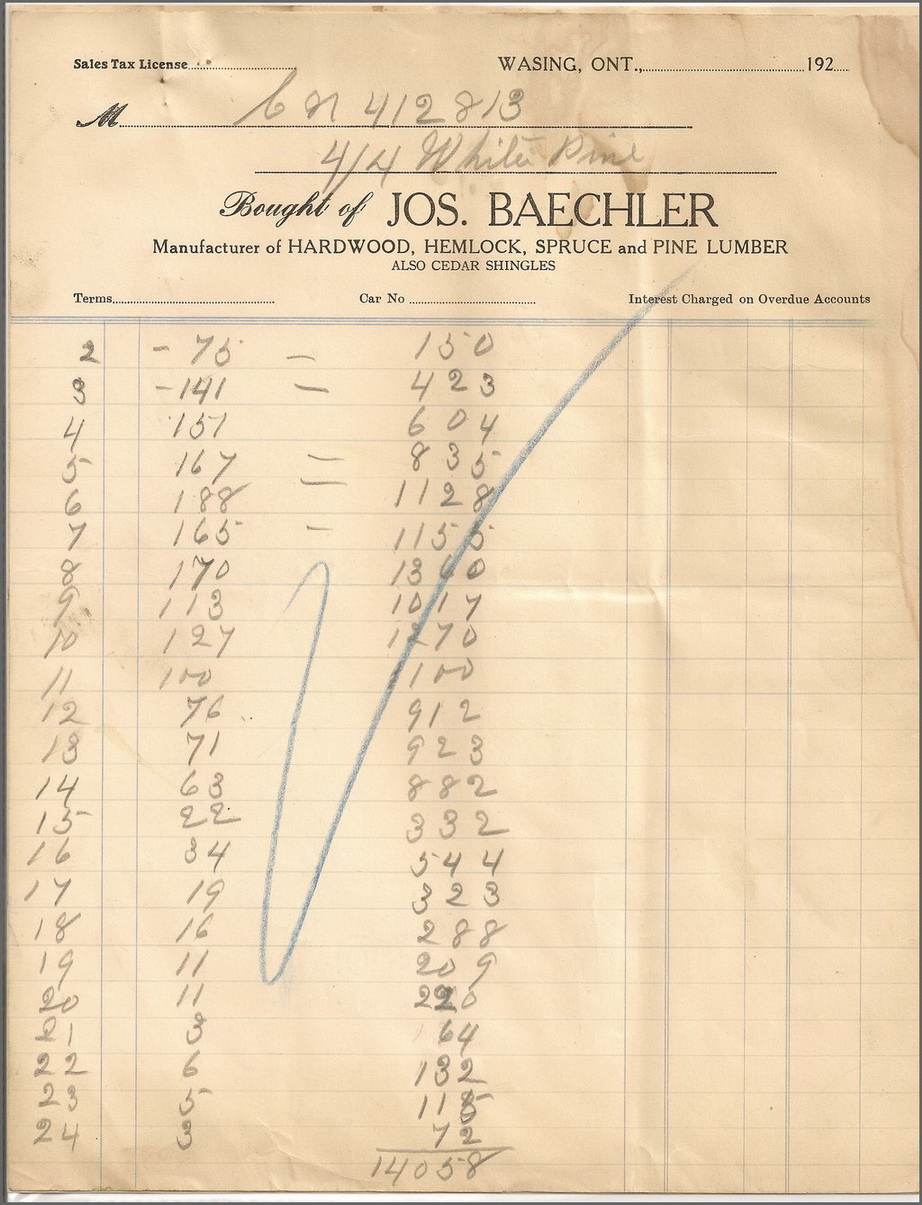 Sales Tax License WASING, ONT., 192
M C N 412813
4/4 White Pine
Bought of JOS. BAECHLER
Manufacturer of HARDWOOD, HEMLOCK, SPRUCE and PINE LUMBER
ALSO CEDAR SHINGLES
Terms Car No Interest Charged on Overdue Accounts
2 - 75 - 150
3 - 141 - 423
4 151 604
5 167 - 835
6 188 - 1128
7 165 - 1155
8 170 1360
9 113 1017
10 127 1270
11 100 100
12 76 912
13 71 923
14 63 882
15 22 332
16 34 544
17 19 323
18 16 288
19 11 209
20 11 220
21 3 64
22 6 132
23 5 115
24 3 72
14058